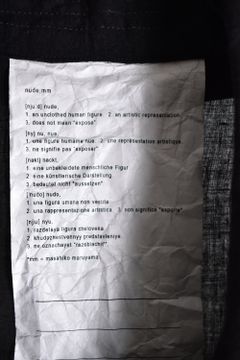 nude:mm
[nju d] nude,
1. an unclothed human figure 2. an artistic representation
3. does not mean "expose"
[ny] nu, nue,
1. une figure humaine nue 2. une représentation artistique
3. ne signifie pas "exposer"
[nakt] nackt,
1. eine unbekleidete menschliche Figur
2. eine künstlerische Darstellung
3. bedeutet nicht "aussetzen"
[nudo] nudo,
1. una figura umana non vestita
2. una rappresentazione artistica 3. non significa "esporre"
[nju] nyu,
1. razdetaya figura cheloveka
2. khudozhestvennyy predstavleniye
3. ne oznachayet "razoblachit'"
*mm = masahiko maruyama